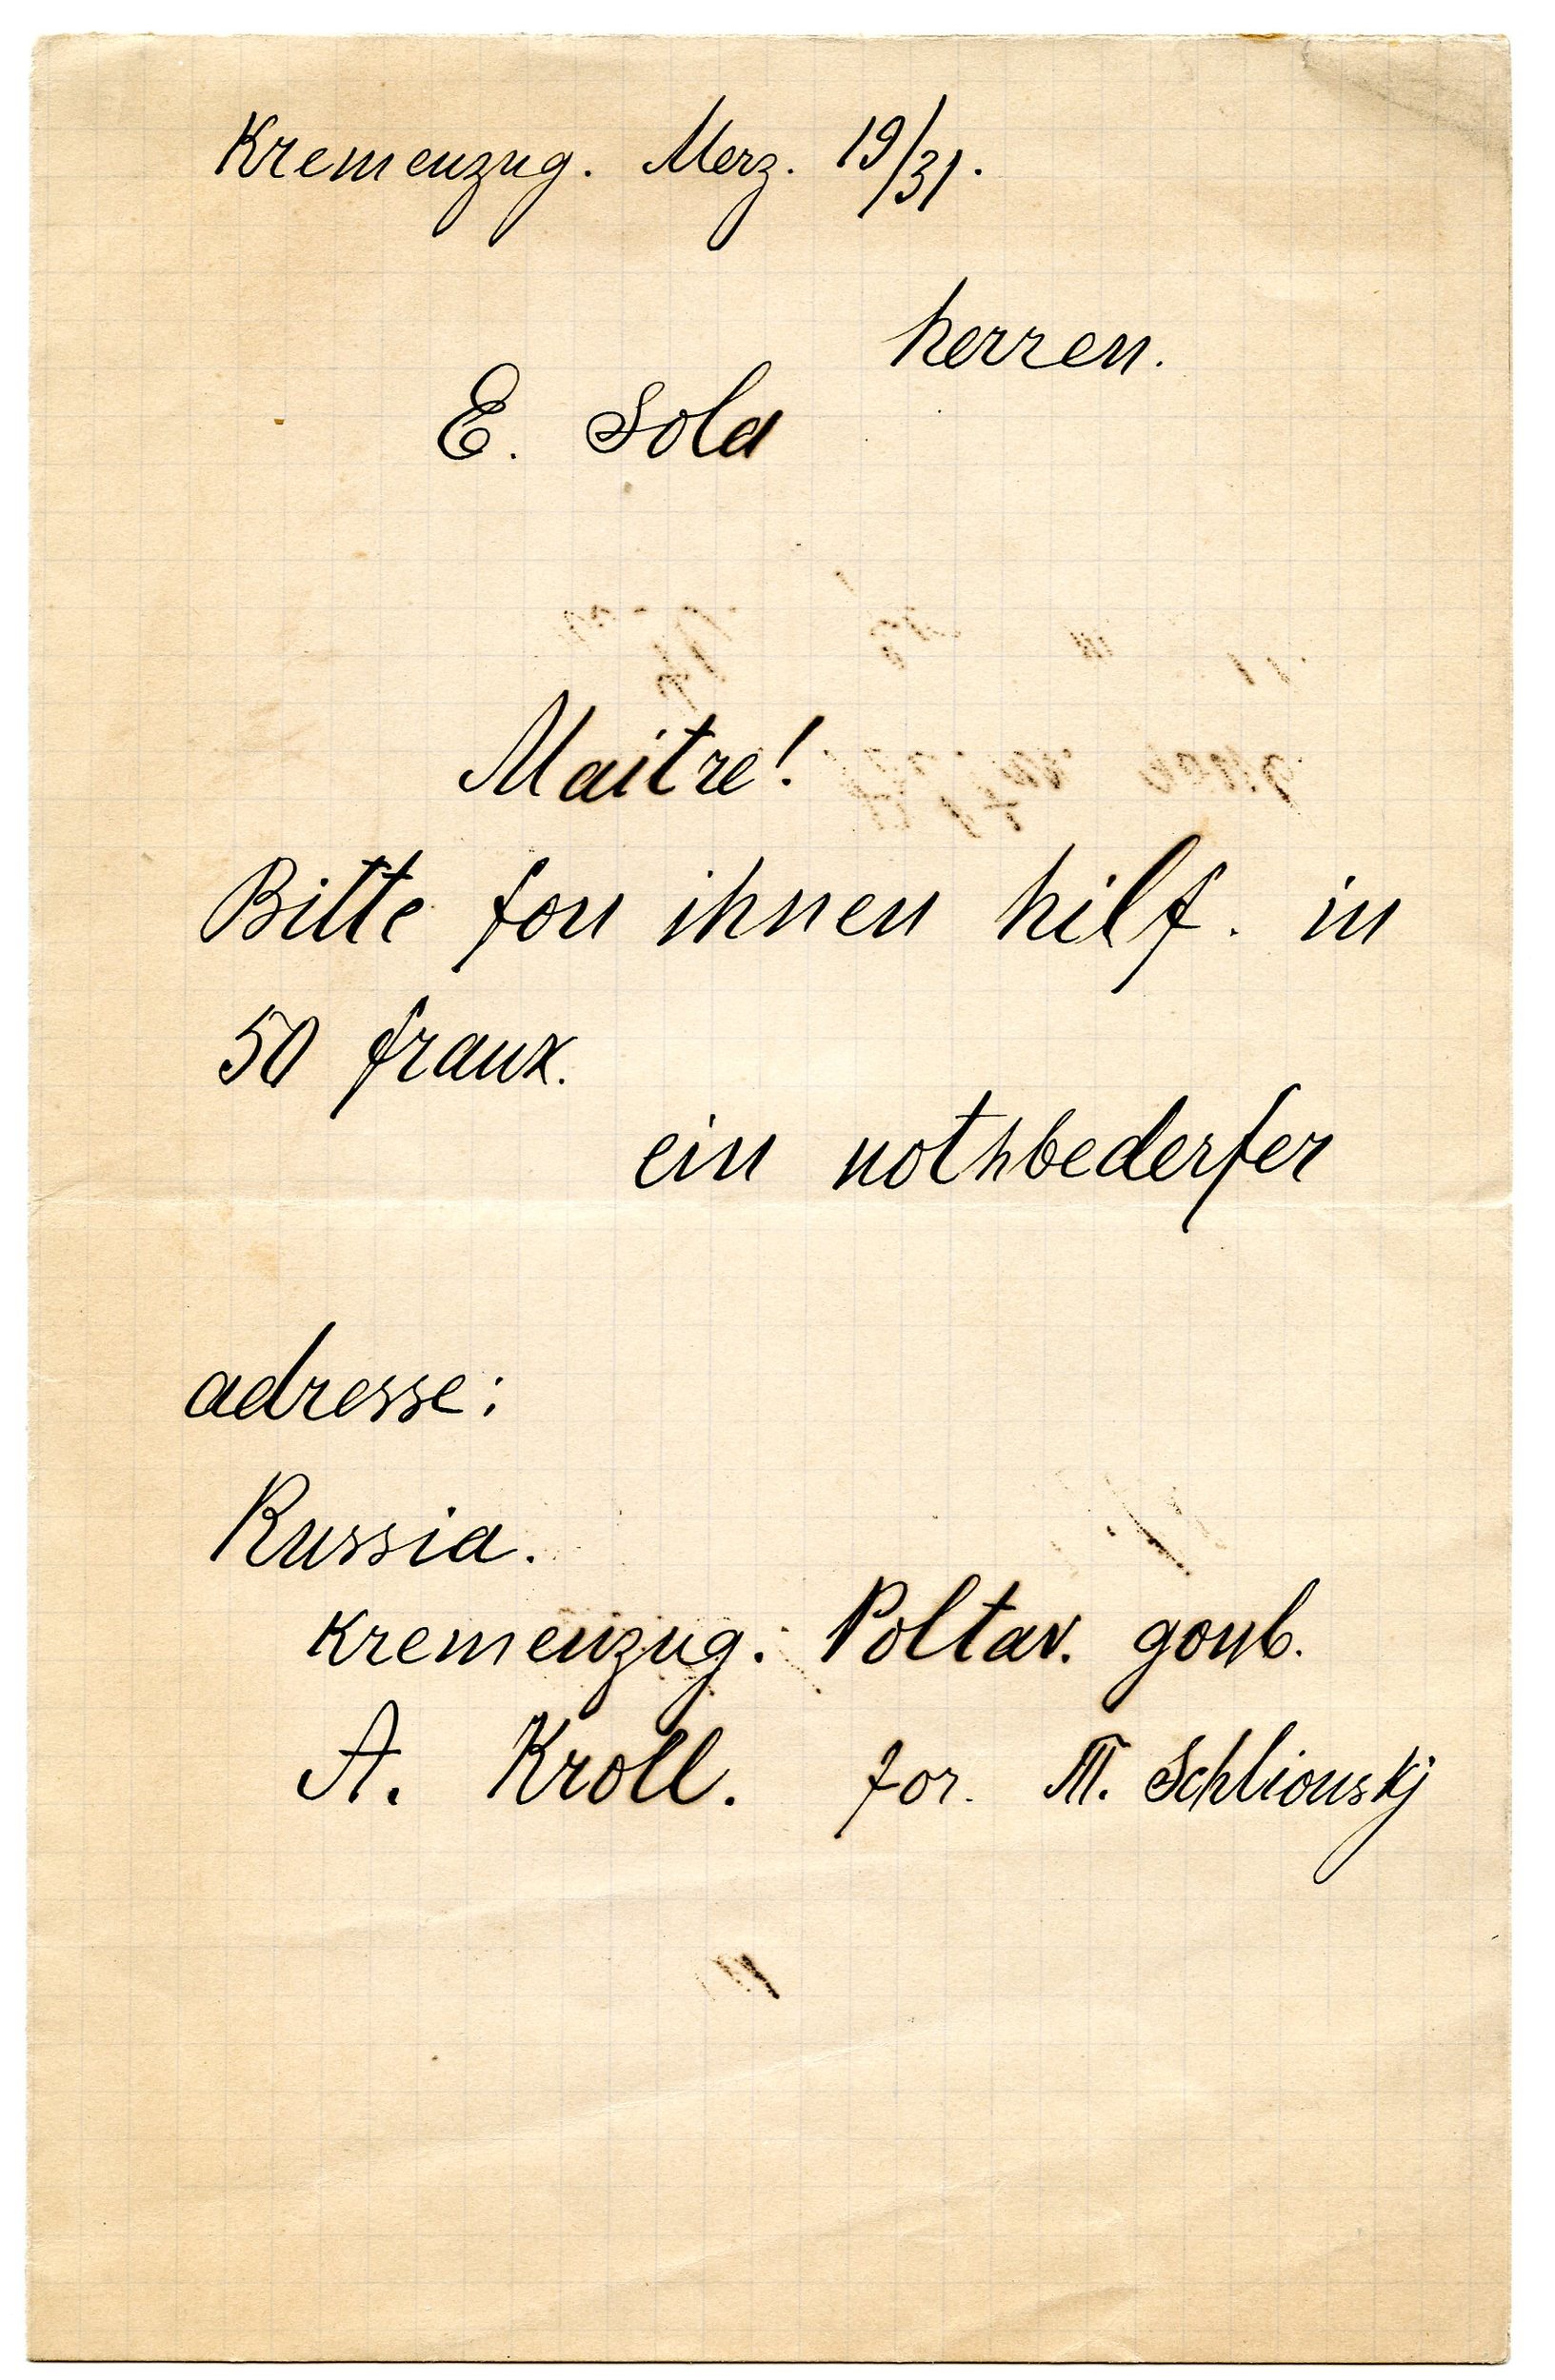 Kremenzug. Merz. 19/31.
herren.
E. Sola
Maitre!
Bitte fon ihnen hilf. in
50 franx.
ein nothbederfer
adresse:
Russia.
Kremenzug. Poltav. goub.
A. Kroll. for. M. Schlionskj